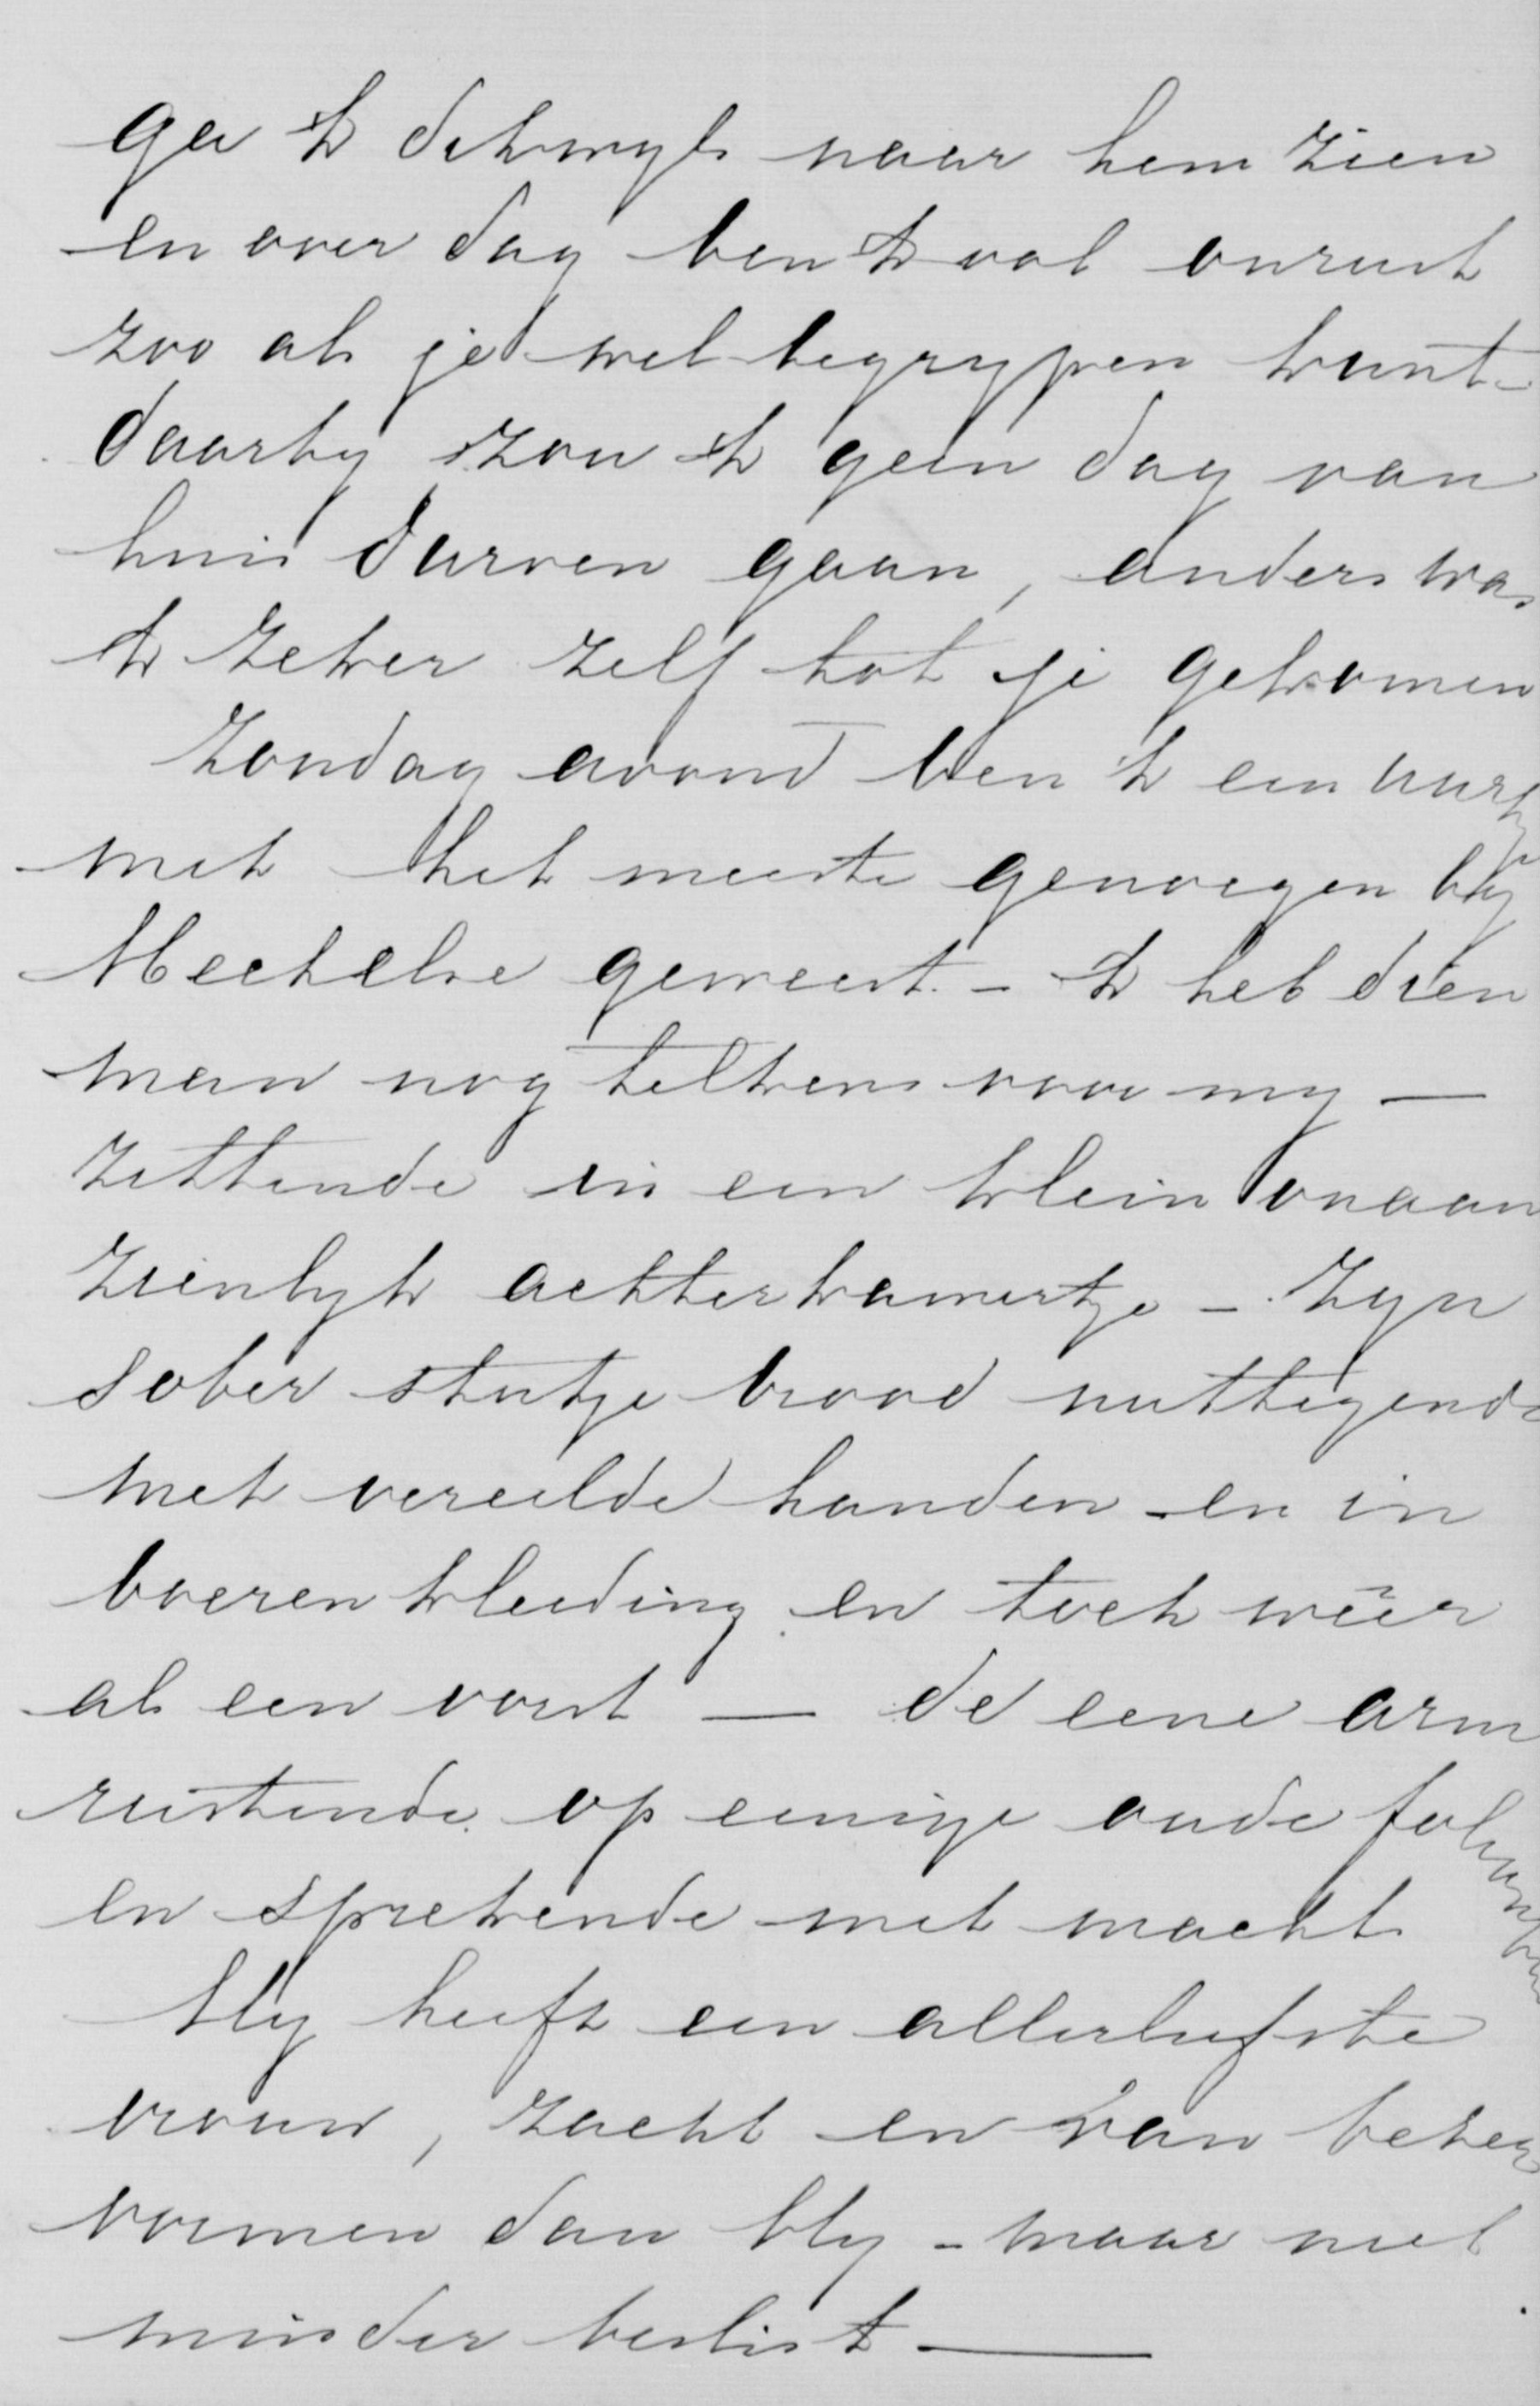 ga ik dikwyls naar hem zien
en over dag ben ik vol onrust
zoo als je wel begrypen kunt
daarby zou ik geen dag van
huis durven gaan, anders was
ik zeker zelf tot je gekomen
Zondag avond ben ik een uurtje
met het meeste genoegen by
Heehelse geweest - ik heb dien
man nog telkens voor my —
zittende in een klein onaan
zienlyk achterkamertje - Zyn
sober stukje brood nuttigende
met vereelde handen en in
boeren kleeding en toch weer
als een vorst — de eene arm
rustende op eenige oude folianten
en sprekende met macht
Hy heeft een allerliefste
vrouw, zacht en van beter
vormen dan Hy - maar niet
minder beslist —